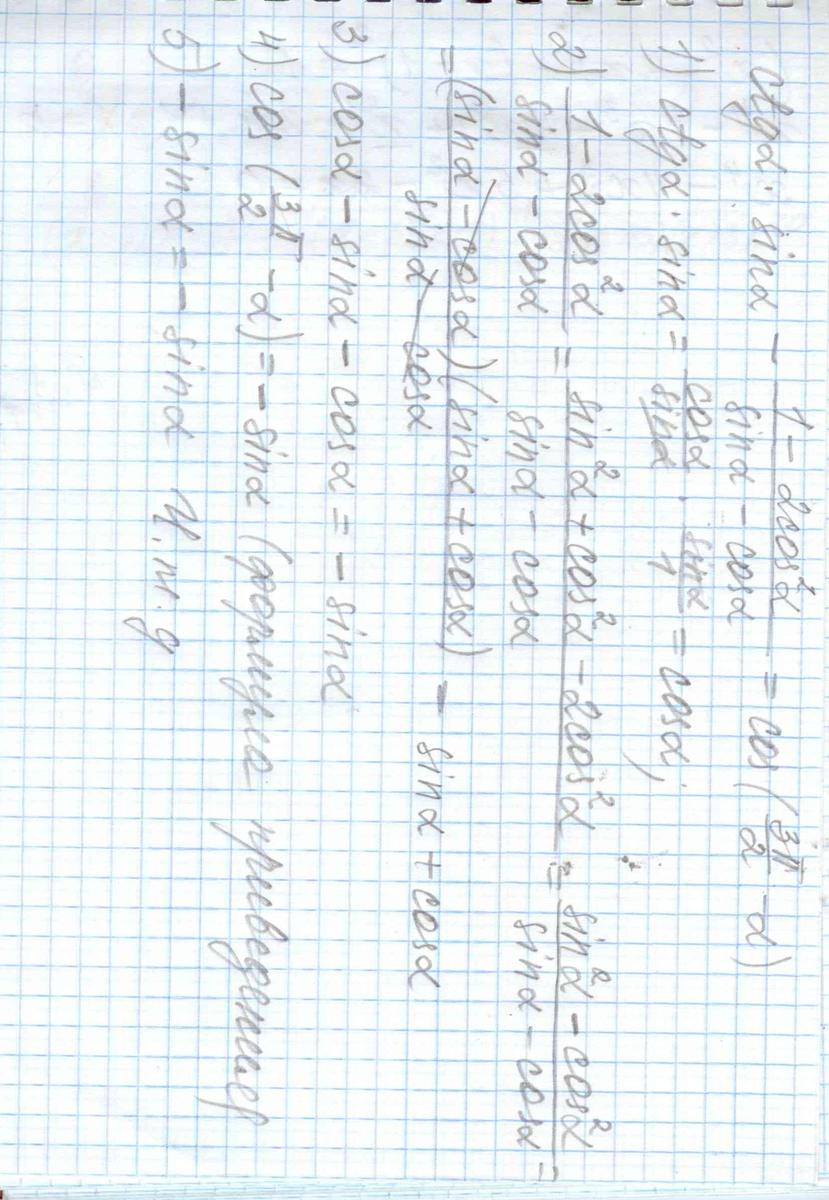 ctgα · sinα - (1 - 2cos²α)/(sinα - cosα) = cos(3π/2 - α)
1) ctgα · sinα = cosα/sinα · sinα/1 = cosα;
2) (1 - 2cos²α)/(sinα - cosα) = (sin²α + cos²α - 2cos²α)/(sinα - cosα) = (sin²α - cos²α)/(sinα - cosα) =
= (sinα - cosα)(sinα + cosα)/(sinα - cosα) = sinα + cosα
3) cosα - sinα - cosα = - sinα
4) cos(3π/2 - α) = - sinα (формула приведения)
5) - sinα = - sinα Ч.т.д